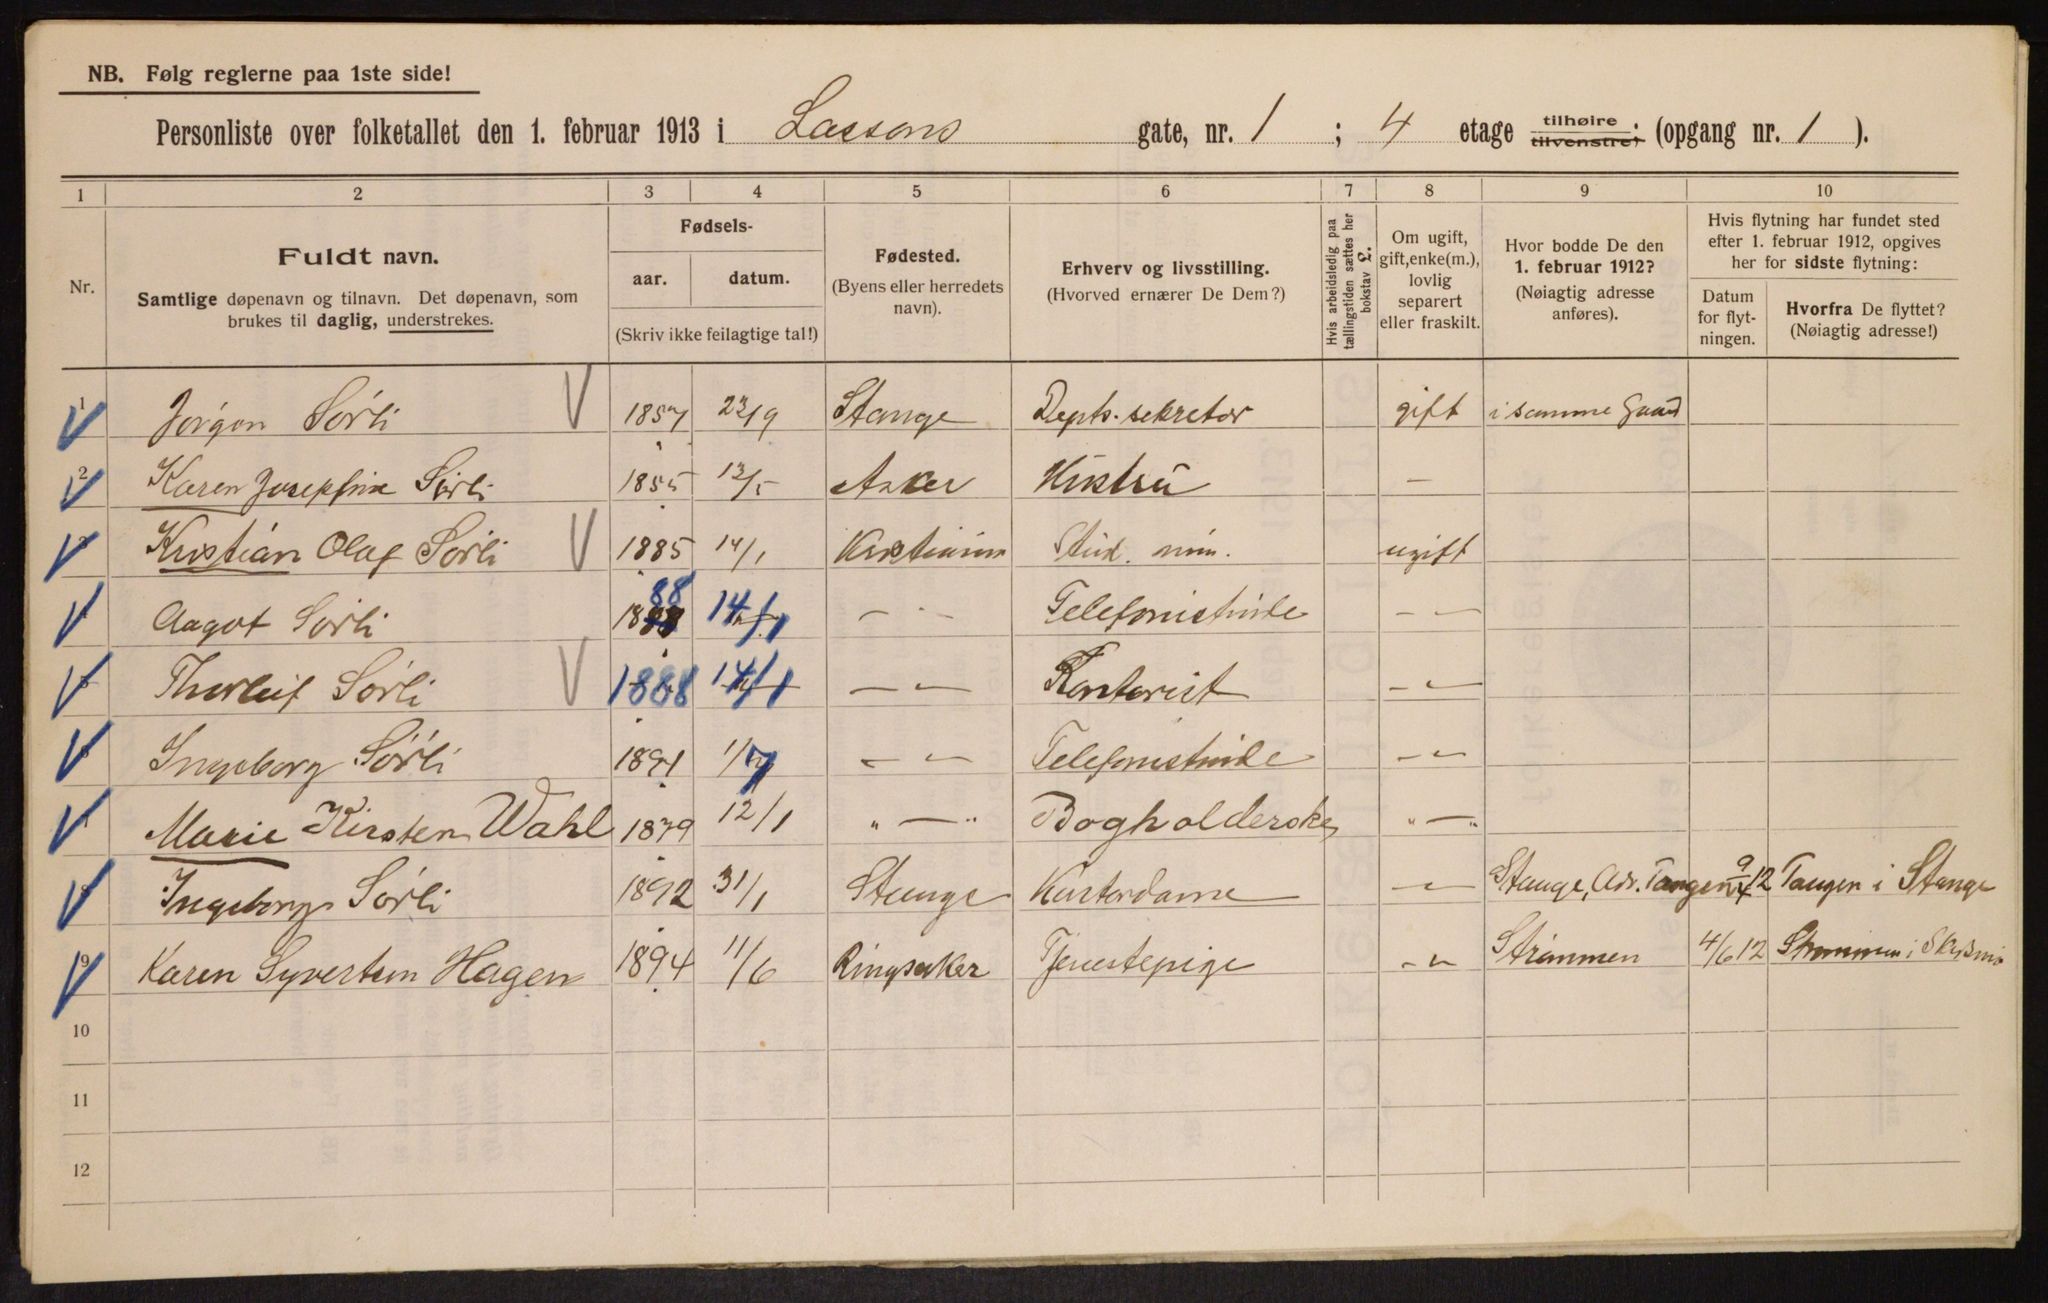 NB. Følg reglerne paa 1ste side!
Personliste over folketallet den 1. februar 1913 i Lassons gate, nr. 1 ; 4 etage tilhøire tilvenstre; (opgang nr. 1 ).
1 2 3 4 5 6 7 8 9 10
Nr.
Fuldt navn.
Samtlige døpenavn og tilnavn. Det døpenavn, som
brukes til daglig, understrekes.
Fødsels-
aar. datum.
(Skriv ikke feilagtige tal!)
Fødested.
(Byens eller herredets
navn).
Erhverv og livsstilling.
(Hvorved ernærer De Dem?)
Hvis arbeidsledig paa
tællingstiden sættes her
bokstav L.
Om ugift,
gift, enke(m.),
lovlig
separert
eller fraskilt.
Hvor bodde De den
1. februar 1912?
(Nøiagtig adresse
anføres).
Hvis flytning har fundet sted
efter 1. februar 1912, opgives
her for sidste flytning:
Datum
for flyt-
ningen.
Hvorfra De flyttet?
(Nøiagtig adresse!)
1 Jørgen Sørli 1857 23/9 Stange Depts. sekretær gift i samme Gaard
2 Karen Josephine Sørli 1855 13/5 Asker Hustru —
3 Kristian Olaf Sørli 1885 14/1 Kristiania Stud. min. ugift
4 Aagot Sørli 1888 14/1 — " — Telefonistinde — " —
5 Thorleif Sørli 1888 14/1 — " — Kontorist — " —
6 Ingeborg Sørli 1891 1/7 — " — Telefonistinde — " —
7 Marie Kirsten Wahl 1879 12/1 " — " Bogholderske " — "
8 Ingeborg Sørli 1892 31/1 Stange Kontordame — " — Stange, Adr. Tangen 12 Tangen i Stange
9 Karen Syvertsen Hagen 1894 11/6 Ringsaker Tjenestepige — " — Strømmen 4/6 12 Strømmen i Skedsmo
10
11
12